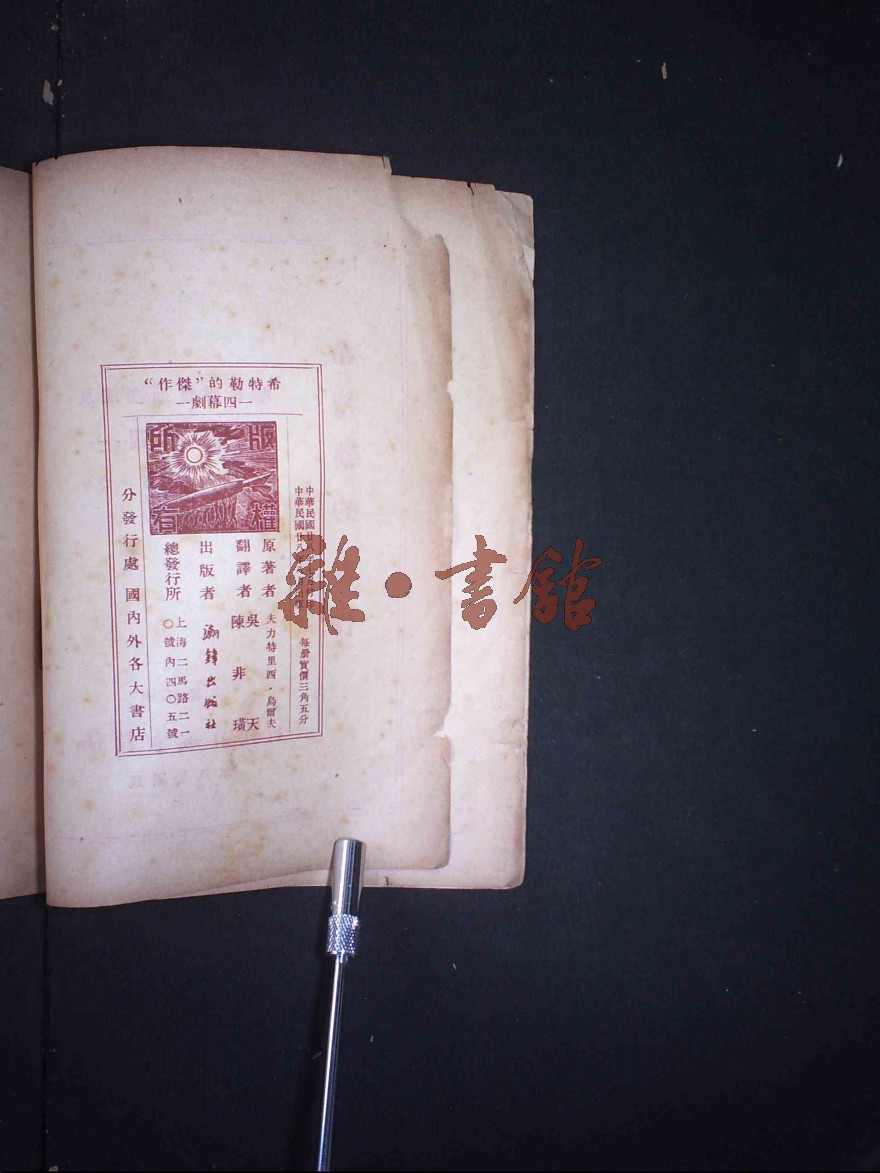 希特勒的“傑作”
—四幕劇—
版權所有
中華民國廿
中華民國廿八
每册實價三角五分
原著者 夫力特里西·烏爾夫
翻譯者 吳天
陳非璜
出版者 潮鋒出版社
總發行所 上海二馬路二一
〇號內四〇五號
分發行處 國內外各大書店
雜·書館